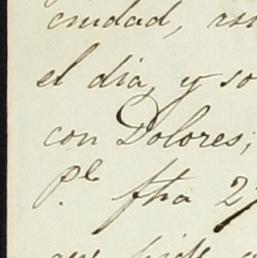 ciudad, asi
el dia, y so
con Dolores;
pl fha 27